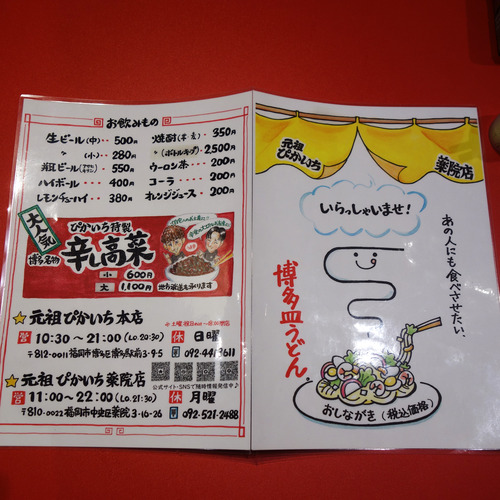 お飲みもの
生ビール(中)・・ 500円
〃 (小)・・・ 280円
瓶ビール ・・・ 550円
ハイボール ・・・ 400円
レモンチューハイ・・ 380円
焼酎(芋・麦)・・ 350円
〃 (ボトルキープ) 2,500円
ウーロン茶・・・ 200円
コーラ ・・・ 200円
オレンジジュース・・ 200円
大人気
博多名物
ぴかいち特製
辛し高菜
小 600円
大 1,100円
地方発送も承ります
元祖ぴかいち本店
営 10:30~21:00(Lo.20:30) 休 日曜
〒812-0011 福岡市博多区博多駅前3-9-5 092-441-3611
公式サイト・SNSで随時情報発信中♪
元祖ぴかいち薬院店
営 11:00~22:00(Lo.21:30) 休 月曜
〒810-0022 福岡市中央区薬院3-16-26 092-521-2488
元祖
ぴかいち
薬院店
いらっしゃいませ!
あの人にも食べさせたい、
博多皿うどん。
おしながき(税込価格)